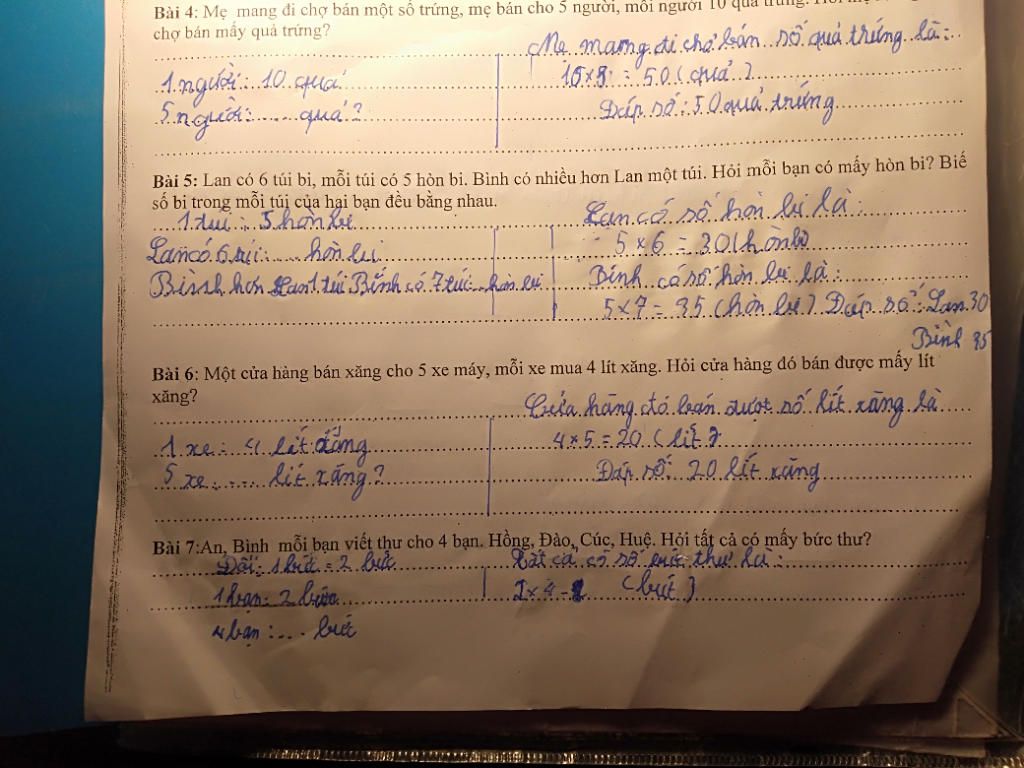 Bài 4: Mẹ mang đi chợ bán một số trứng, mẹ bán cho 5 người, mỗi người 10 quả trứng.
chợ bán mấy quả trứng?
Mẹ mang đi chợ bán số quả trứng là:
1 người: 10 quả
10 x 5 = 50 (quả)
5 người: .... quả?
Đáp số: 50 quả trứng
Bài 5: Lan có 6 túi bi, mỗi túi có 5 hòn bi. Bình có nhiều hơn Lan một túi. Hỏi mỗi bạn có mấy hòn bi? Biế
số bi trong mỗi túi của hai bạn đều bằng nhau.
1 túi: 5 hòn bi
Lan có số hòn bi là:
Lan có 6 túi: .... hòn bi
5 x 6 = 30 (hòn bi)
Bình hơn Lan 1 túi Bình có 7 túi: .. hòn bi
Bình có số hòn bi là:
5 x 7 = 35 (hòn bi) Đáp số: Lan 30
Bình 35
Bài 6: Một cửa hàng bán xăng cho 5 xe máy, mỗi xe mua 4 lít xăng. Hỏi cửa hàng đó bán được mấy lít
xăng?
Cửa hàng đó bán được số lít xăng là
1 xe: 4 lít
4 x 5 = 20 (lít)
5 xe: .... lít xăng?
Đáp số: 20 lít xăng
Bài 7:An, Bình mỗi bạn viết thư cho 4 bạn. Hồng, Đào, Cúc, Huệ. Hỏi tất cả có mấy bức thư?
Đổi: 1 bức = 2 bức
Tất cả có số bức thư là:
1 bạn: 2 bức
2 x 4 = (bức)
4 bạn: ... bức